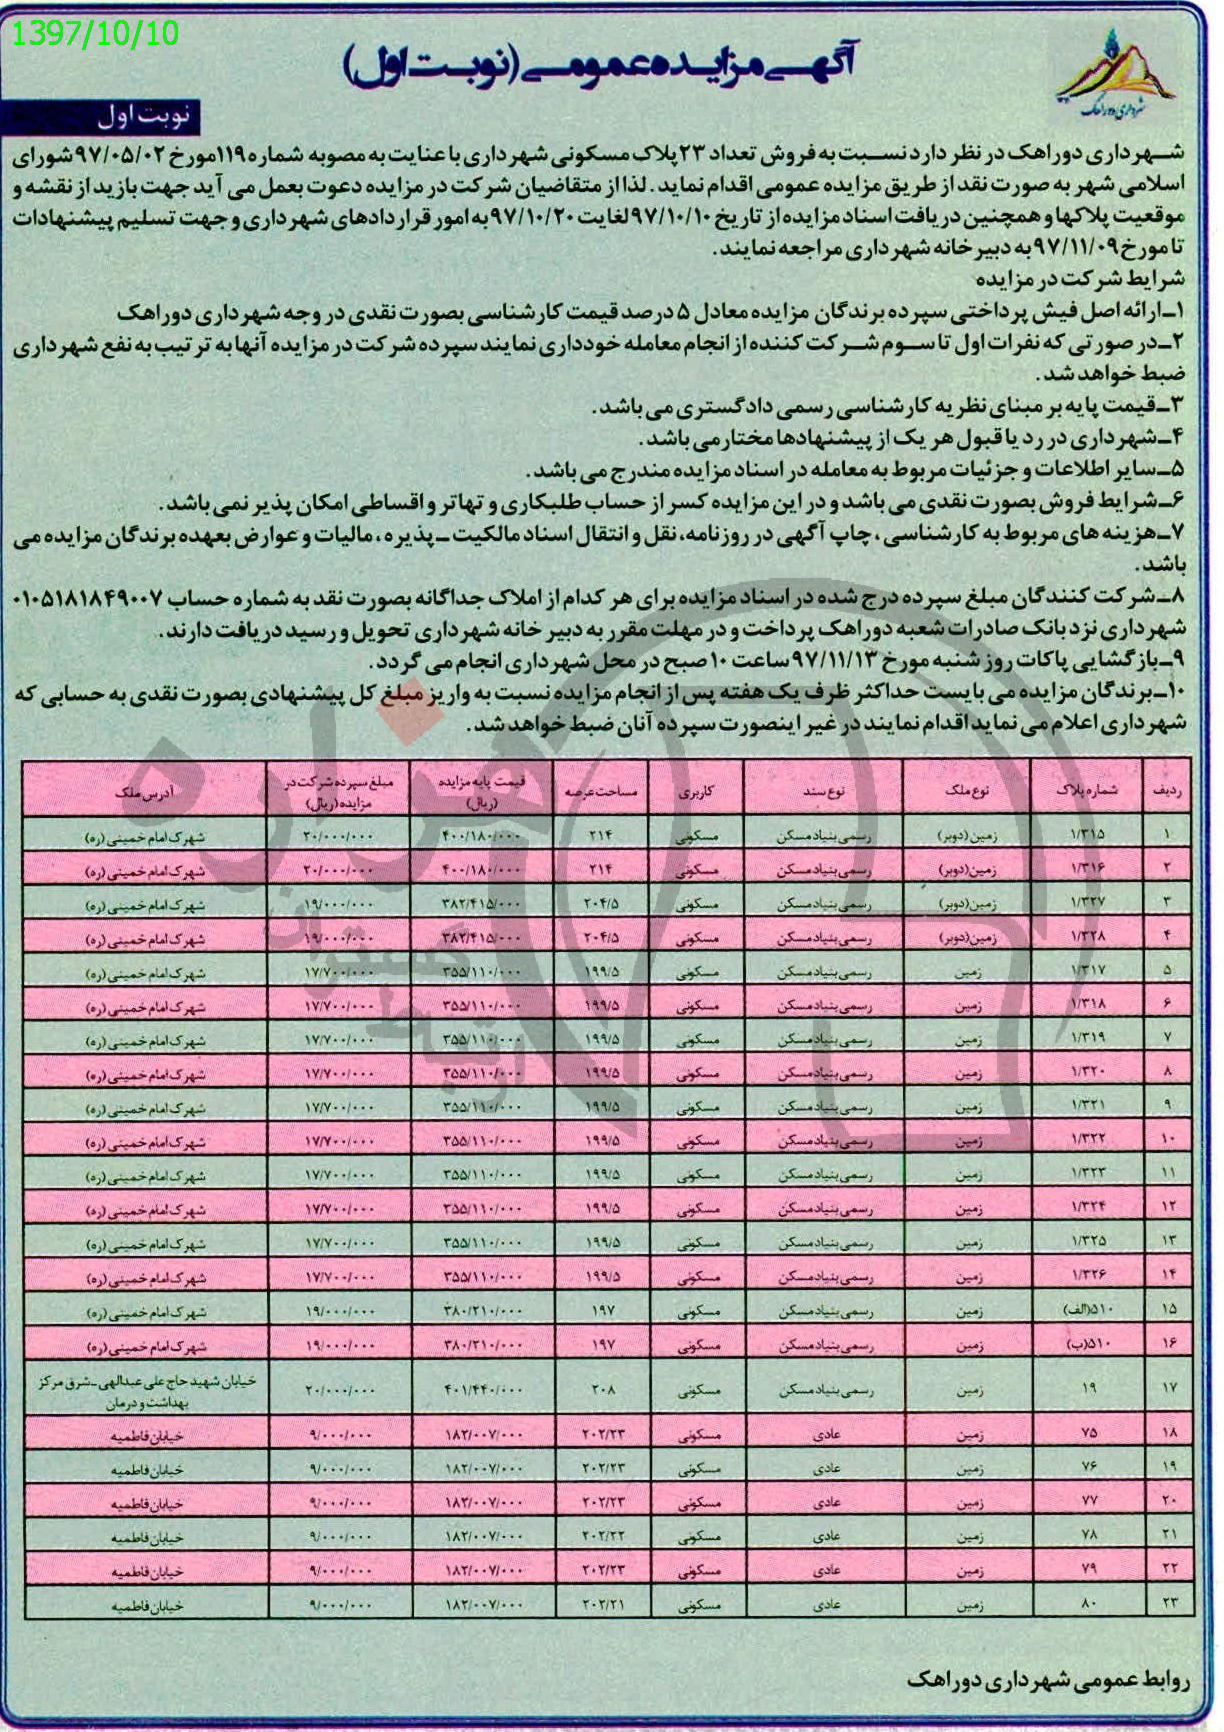 1397/10/10
آگهی مزایده عمومی (نوبت اول)
شهرداری دوراهک
نوبت اول
شهرداری دوراهک در نظر دارد نسبت به فروش تعداد ۲۳ پلاک مسکونی شهرداری با عنایت به مصوبه شماره ۱۱۹ مورخ ۹۷/۰۵/۰۲ شورای
اسلامی شهر به صورت نقد از طریق مزایده عمومی اقدام نماید. لذا از متقاضیان شرکت در مزایده دعوت بعمل می آید جهت بازید از نقشه و
موقعیت پلاکها و همچنین دریافت اسناد مزایده از تاریخ ۹۷/۱۰/۱۰ لغایت ۹۷/۱۰/۲۰ به امور قراردادهای شهرداری و جهت تسلیم پیشنهادات
تا مورخ ۹۷/۱۱/۰۹ به دبیرخانه شهرداری مراجعه نمایند.
شرایط شرکت در مزایده
۱ـ ارائه اصل فیش پرداختی سپرده برندگان مزایده معادل ۵ درصد قیمت کارشناسی بصورت نقدی در وجه شهرداری دوراهک
۲ـ در صورتی که نفرات اول تا سوم شرکت کننده از انجام معامله خودداری نمایند سپرده شرکت در مزایده آنها به ترتیب به نفع شهرداری
ضبط خواهد شد.
۳ـ قیمت پایه بر مبنای نظریه کارشناسی رسمی دادگستری می باشد.
۴ـ شهرداری در رد یا قبول هر یک از پیشنهادها مختار می باشد.
۵ـ سایر اطلاعات و جزئیات مربوط به معامله در اسناد مزایده مندرج می باشد.
۶ـ شرایط فروش بصورت نقدی می باشد و در این مزایده کسر از حساب طلبکاری و تهاتر و اقساطی امکان پذیر نمی باشد.
۷ـ هزینه های مربوط به کارشناسی، چاپ آگهی در روزنامه، نقل و انتقال اسناد مالکیت ـ پذیره، مالیات و عوارض بعهده برندگان مزایده می
باشد.
۸ـ شرکت کنندگان مبلغ سپرده درج شده در اسناد مزایده برای هر کدام از املاک جداگانه بصورت نقد به شماره حساب ۰۱۰۵۱۸۱۸۴۹۰۰۷
شهرداری نزد بانک صادرات شعبه دوراهک پرداخت و در مهلت مقرر به دبیر خانه شهرداری تحویل و رسید دریافت دارند.
۹ـ بازگشایی پاکات روز شنبه مورخ ۹۷/۱۱/۱۳ ساعت ۱۰ صبح در محل شهرداری انجام می گردد.
۱۰ـ برندگان مزایده می بایست حداکثر ظرف یک هفته پس از انجام مزایده نسبت به واریز مبلغ کل پیشنهادی بصورت نقدی به حسابی که
شهرداری اعلام می نماید اقدام نمایند در غیر اینصورت سپرده آنان ضبط خواهد شد.
ردیف شماره پلاک نوع ملک نوع سند کاربری مساحت عرصه قیمت پایه مزایده (ریال) مبلغ سپرده شرکت در مزایده (ریال) آدرس ملک
۱ ۱/۳۱۵ زمین (دوبر) رسمی بنیاد مسکن مسکونی ۲۱۴ ۴۰۰/۱۸۰/۰۰۰ ۲۰/۰۰۰/۰۰۰ شهرک امام خمینی (ره)
۲ ۱/۳۱۶ زمین (دوبر) رسمی بنیاد مسکن مسکونی ۲۱۴ ۴۰۰/۱۸۰/۰۰۰ ۲۰/۰۰۰/۰۰۰ شهرک امام خمینی (ره)
۳ ۱/۳۲۷ زمین (دوبر) رسمی بنیاد مسکن مسکونی ۲۰۴/۵ ۳۸۲/۴۱۵/۰۰۰ ۱۹/۰۰۰/۰۰۰ شهرک امام خمینی (ره)
۴ ۱/۳۲۸ زمین (دوبر) رسمی بنیاد مسکن مسکونی ۲۰۴/۵ ۳۸۲/۴۱۵/۰۰۰ ۱۹/۰۰۰/۰۰۰ شهرک امام خمینی (ره)
۵ ۱/۳۱۷ زمین رسمی بنیاد مسکن مسکونی ۱۹۹/۵ ۳۵۵/۱۱۰/۰۰۰ ۱۷/۷۰۰/۰۰۰ شهرک امام خمینی (ره)
۶ ۱/۳۱۸ زمین رسمی بنیاد مسکن مسکونی ۱۹۹/۵ ۳۵۵/۱۱۰/۰۰۰ ۱۷/۷۰۰/۰۰۰ شهرک امام خمینی (ره)
۷ ۱/۳۱۹ زمین رسمی بنیاد مسکن مسکونی ۱۹۹/۵ ۳۵۵/۱۱۰/۰۰۰ ۱۷/۷۰۰/۰۰۰ شهرک امام خمینی (ره)
۸ ۱/۳۲۰ زمین رسمی بنیاد مسکن مسکونی ۱۹۹/۵ ۳۵۵/۱۱۰/۰۰۰ ۱۷/۷۰۰/۰۰۰ شهرک امام خمینی (ره)
۹ ۱/۳۲۱ زمین رسمی بنیاد مسکن مسکونی ۱۹۹/۵ ۳۵۵/۱۱۰/۰۰۰ ۱۷/۷۰۰/۰۰۰ شهرک امام خمینی (ره)
۱۰ ۱/۳۲۲ زمین رسمی بنیاد مسکن مسکونی ۱۹۹/۵ ۳۵۵/۱۱۰/۰۰۰ ۱۷/۷۰۰/۰۰۰ شهرک امام خمینی (ره)
۱۱ ۱/۳۲۳ زمین رسمی بنیاد مسکن مسکونی ۱۹۹/۵ ۳۵۵/۱۱۰/۰۰۰ ۱۷/۷۰۰/۰۰۰ شهرک امام خمینی (ره)
۱۲ ۱/۳۲۴ زمین رسمی بنیاد مسکن مسکونی ۱۹۹/۵ ۳۵۵/۱۱۰/۰۰۰ ۱۷/۷۰۰/۰۰۰ شهرک امام خمینی (ره)
۱۳ ۱/۳۲۵ زمین رسمی بنیاد مسکن مسکونی ۱۹۹/۵ ۳۵۵/۱۱۰/۰۰۰ ۱۷/۷۰۰/۰۰۰ شهرک امام خمینی (ره)
۱۴ ۱/۳۲۶ زمین رسمی بنیاد مسکن مسکونی ۱۹۹/۵ ۳۵۵/۱۱۰/۰۰۰ ۱۷/۷۰۰/۰۰۰ شهرک امام خمینی (ره)
۱۵ ۵۱۰(الف) زمین رسمی بنیاد مسکن مسکونی ۱۹۷ ۳۸۰/۲۱۰/۰۰۰ ۱۹/۰۰۰/۰۰۰ شهرک امام خمینی (ره)
۱۶ ۵۱۰(ب) زمین رسمی بنیاد مسکن مسکونی ۱۹۷ ۳۸۰/۲۱۰/۰۰۰ ۱۹/۰۰۰/۰۰۰ شهرک امام خمینی (ره)
۱۷ ۱۹ زمین رسمی بنیاد مسکن مسکونی ۲۰۸ ۴۰۱/۴۴۰/۰۰۰ ۲۰/۰۰۰/۰۰۰ خیابان شهید حاج علی عبدالهی ـ شرق مرکز بهداشت و درمان
۱۸ ۷۵ زمین عادی مسکونی ۲۰۲/۲۳ ۱۸۲/۰۰۷/۰۰۰ ۹/۰۰۰/۰۰۰ خیابان فاطمیه
۱۹ ۷۶ زمین عادی مسکونی ۲۰۲/۲۳ ۱۸۲/۰۰۷/۰۰۰ ۹/۰۰۰/۰۰۰ خیابان فاطمیه
۲۰ ۷۷ زمین عادی مسکونی ۲۰۲/۲۳ ۱۸۲/۰۰۷/۰۰۰ ۹/۰۰۰/۰۰۰ خیابان فاطمیه
۲۱ ۷۸ زمین عادی مسکونی ۲۰۲/۲۲ ۱۸۲/۰۰۷/۰۰۰ ۹/۰۰۰/۰۰۰ خیابان فاطمیه
۲۲ ۷۹ زمین عادی مسکونی ۲۰۲/۲۳ ۱۸۲/۰۰۷/۰۰۰ ۹/۰۰۰/۰۰۰ خیابان فاطمیه
۲۳ ۸۰ زمین عادی مسکونی ۲۰۲/۲۱ ۱۸۲/۰۰۷/۰۰۰ ۹/۰۰۰/۰۰۰ خیابان فاطمیه
روابط عمومی شهرداری دوراهک